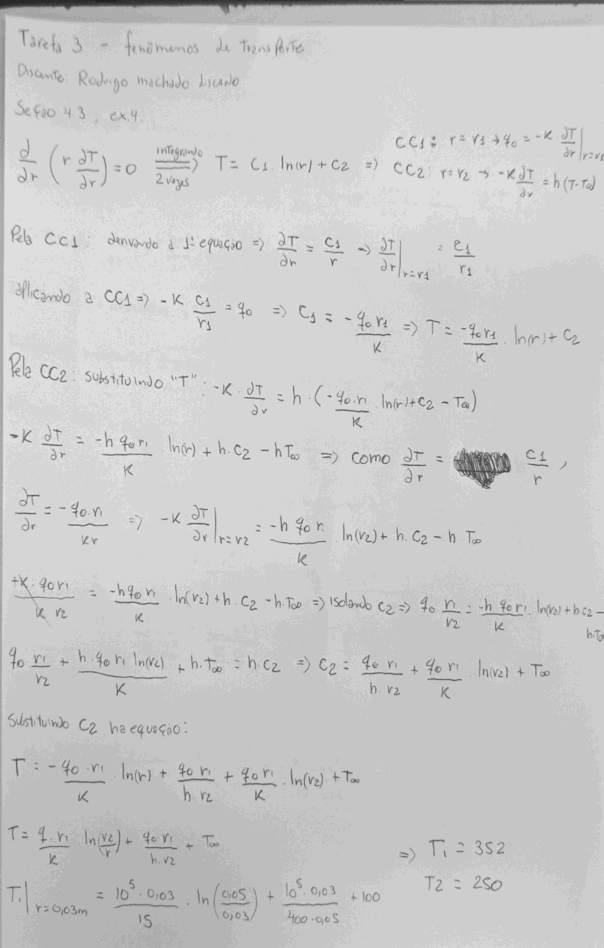 Tarefa 3 - fenômenos de transporte
Discente: Rodrigo machado
Seção 4.3, ex.4.
∂/∂r (r ∂T/∂r) = 0 integrando 2 vezes ⇒ T = C1 . ln(r) + C2 ⇒ CC1: r = r1 → q0 = -K ∂T/∂r|r=r1
CC2: r = r2 → -K ∂T/∂r = h(T-T∞)
Pela CC1: derivando a 1ª equação ⇒ ∂T/∂r = C1/r → ∂T/∂r|r=r1 = C1/r1
aplicando a CC1 ⇒ -K C1/r1 = q0 ⇒ C1 = -q0 r1/K ⇒ T = -q0 r1/K . ln(r) + C2
Pela CC2: substituindo "T": -K . ∂T/∂r = h . (-q0 . r1/K ln(r) + C2 - T∞)
-K ∂T/∂r = -h q0 r1/K . ln(r) + h. C2 - h T∞ ⇒ como ∂T/∂r = C1/r,
∂T/∂r = -q0 . r1/Kr ⇒ -K ∂T/∂r|r=r2 = -h q0 r1/K . ln(r2) + h. C2 - h. T∞
+K . q0 r1/K r2 = -h q0 r1/K . ln(r2) + h. C2 - h T∞ ⇒ isolando C2 ⇒ q0 r1/r2 = -h q0 r1/K . ln(r2) + h.C2 - h.T∞
q0 r1/r2 + h. q0 r1 ln(r2)/K + h. T∞ = h. C2 ⇒ C2 = q0 r1/h. r2 + q0 r1/K . ln(r2) + T∞
Substituindo C2 na equação:
T = -q0 . r1/K . ln(r) + q0 r1/h r2 + q0 r1/K . ln(r2) + T∞
T = q . r1/K ln(r2/r) + q0 . r1/h. r2 + T∞
⇒ T1 = 352
T2 = 250
T1|r=0,03m = 10^5 . 0,03/15 . ln(0,05/0,03) + 10^5 . 0,03/400 . 0,05 + 100